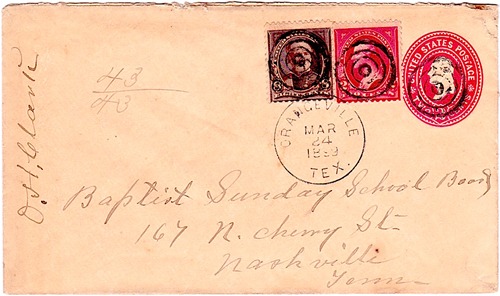 UNITED STATES POSTAGE
43
43
ORANGEVILLE
MAR
24
TEX.
O. H. Clark
Baptist Sunday School Board
167 N. Cherry St.
Nashville
Tenn